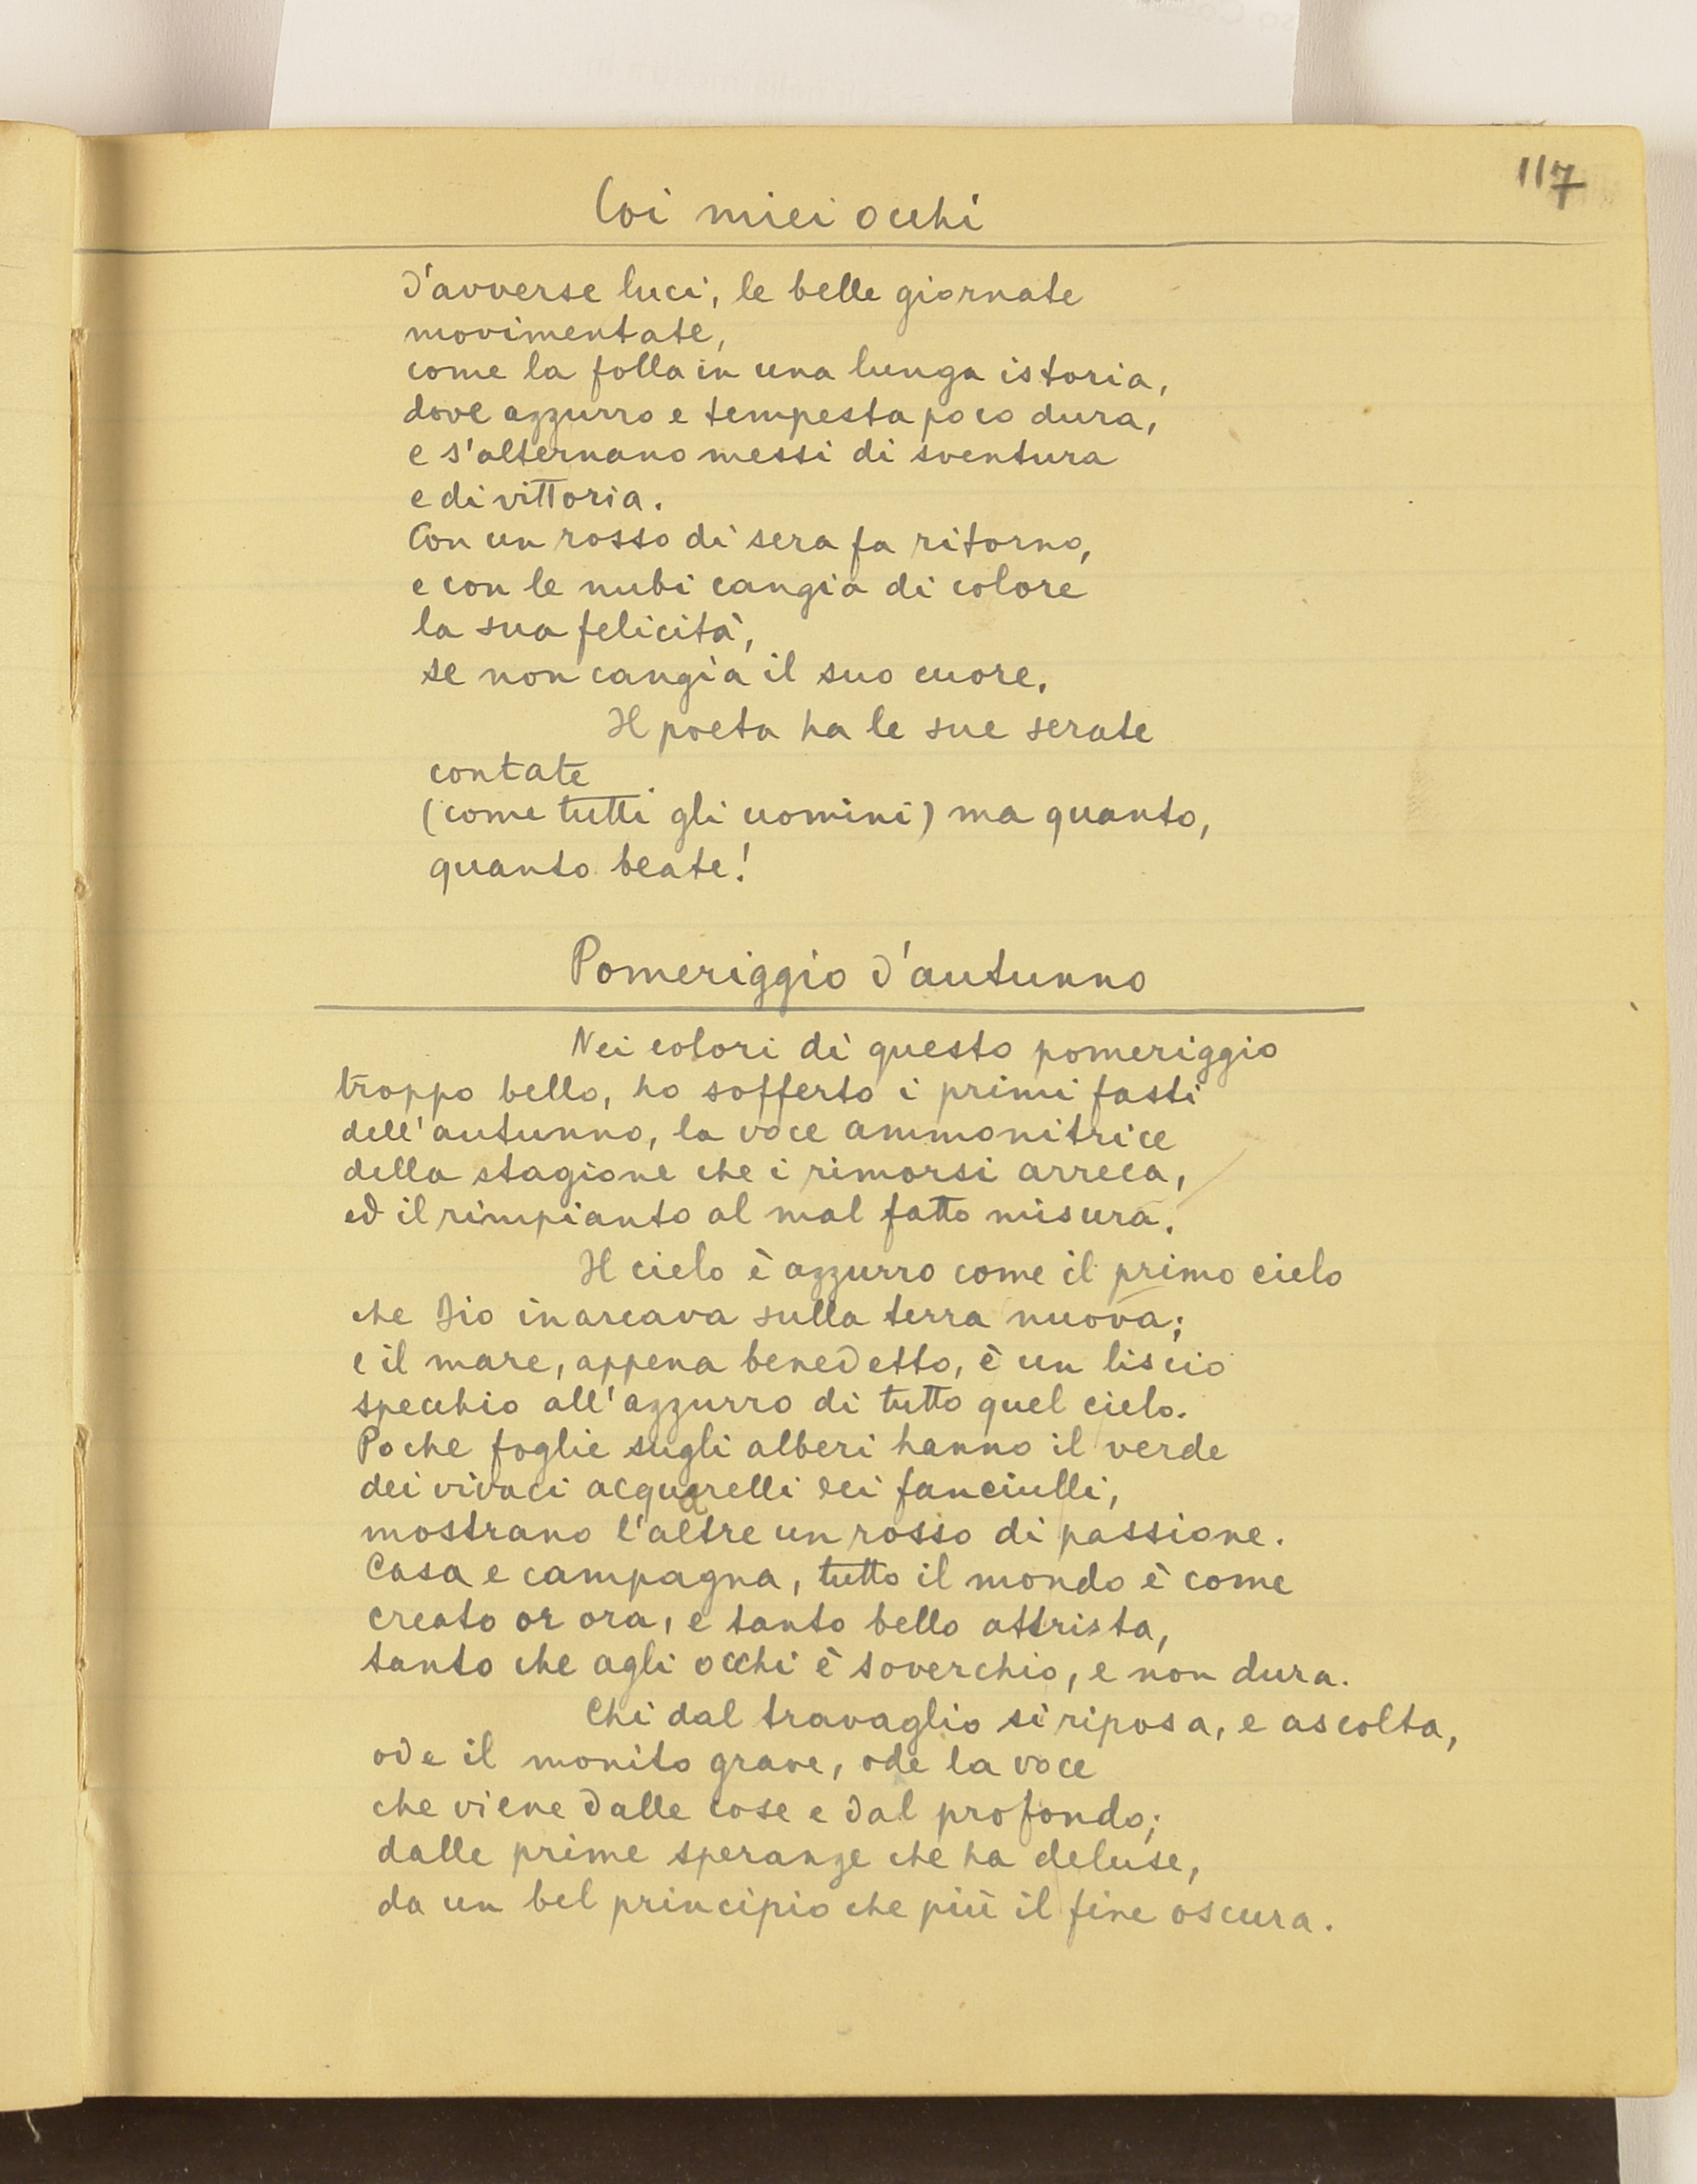 117
Coi miei occhi
D'avverse luci, le belle giornate
movimentate,
come la folla in una lunga istoria,
dove azzurro e tempesta poco dura,
e s'alternano messi di sventura
e di vittoria.
Con un rosso di sera fa ritorno,
e con le nubi cangia di colore
la sua felicità,
se non cangia il suo cuore.
Il poeta ha le sue serate
contate
(come tutti gli uomini) ma quanto,
quanto beate!
Pomeriggio d'autunno
Nei colori di questo pomeriggio
troppo bello, ho sofferto i primi fasti
dell'autunno, la voce ammonitrice
della stagione che i rimorsi arreca,
ed il rimpianto al mal fatto misura.
Il cielo è azzurro come il primo cielo
che Dio inarcava sulla terra nuova;
e il mare, appena benedetto, è un liscio
specchio all'azzurro di tutto quel cielo.
Poche foglie sugli alberi hanno il verde
dei vivaci acquarelli dei fanciulli,
mostrano l'altre un rosso di passione.
Casa e campagna, tutto il mondo è come
creato or ora, e tanto bello attrista,
tanto che agli occhi è soverchio, e non dura.
Chi dal travaglio si riposa, e ascolta,
ode il monito grave, ode la voce
che viene dalle cose e dal profondo;
dalle prime speranze che ha deluse,
da un bel principio che più il fine oscura.